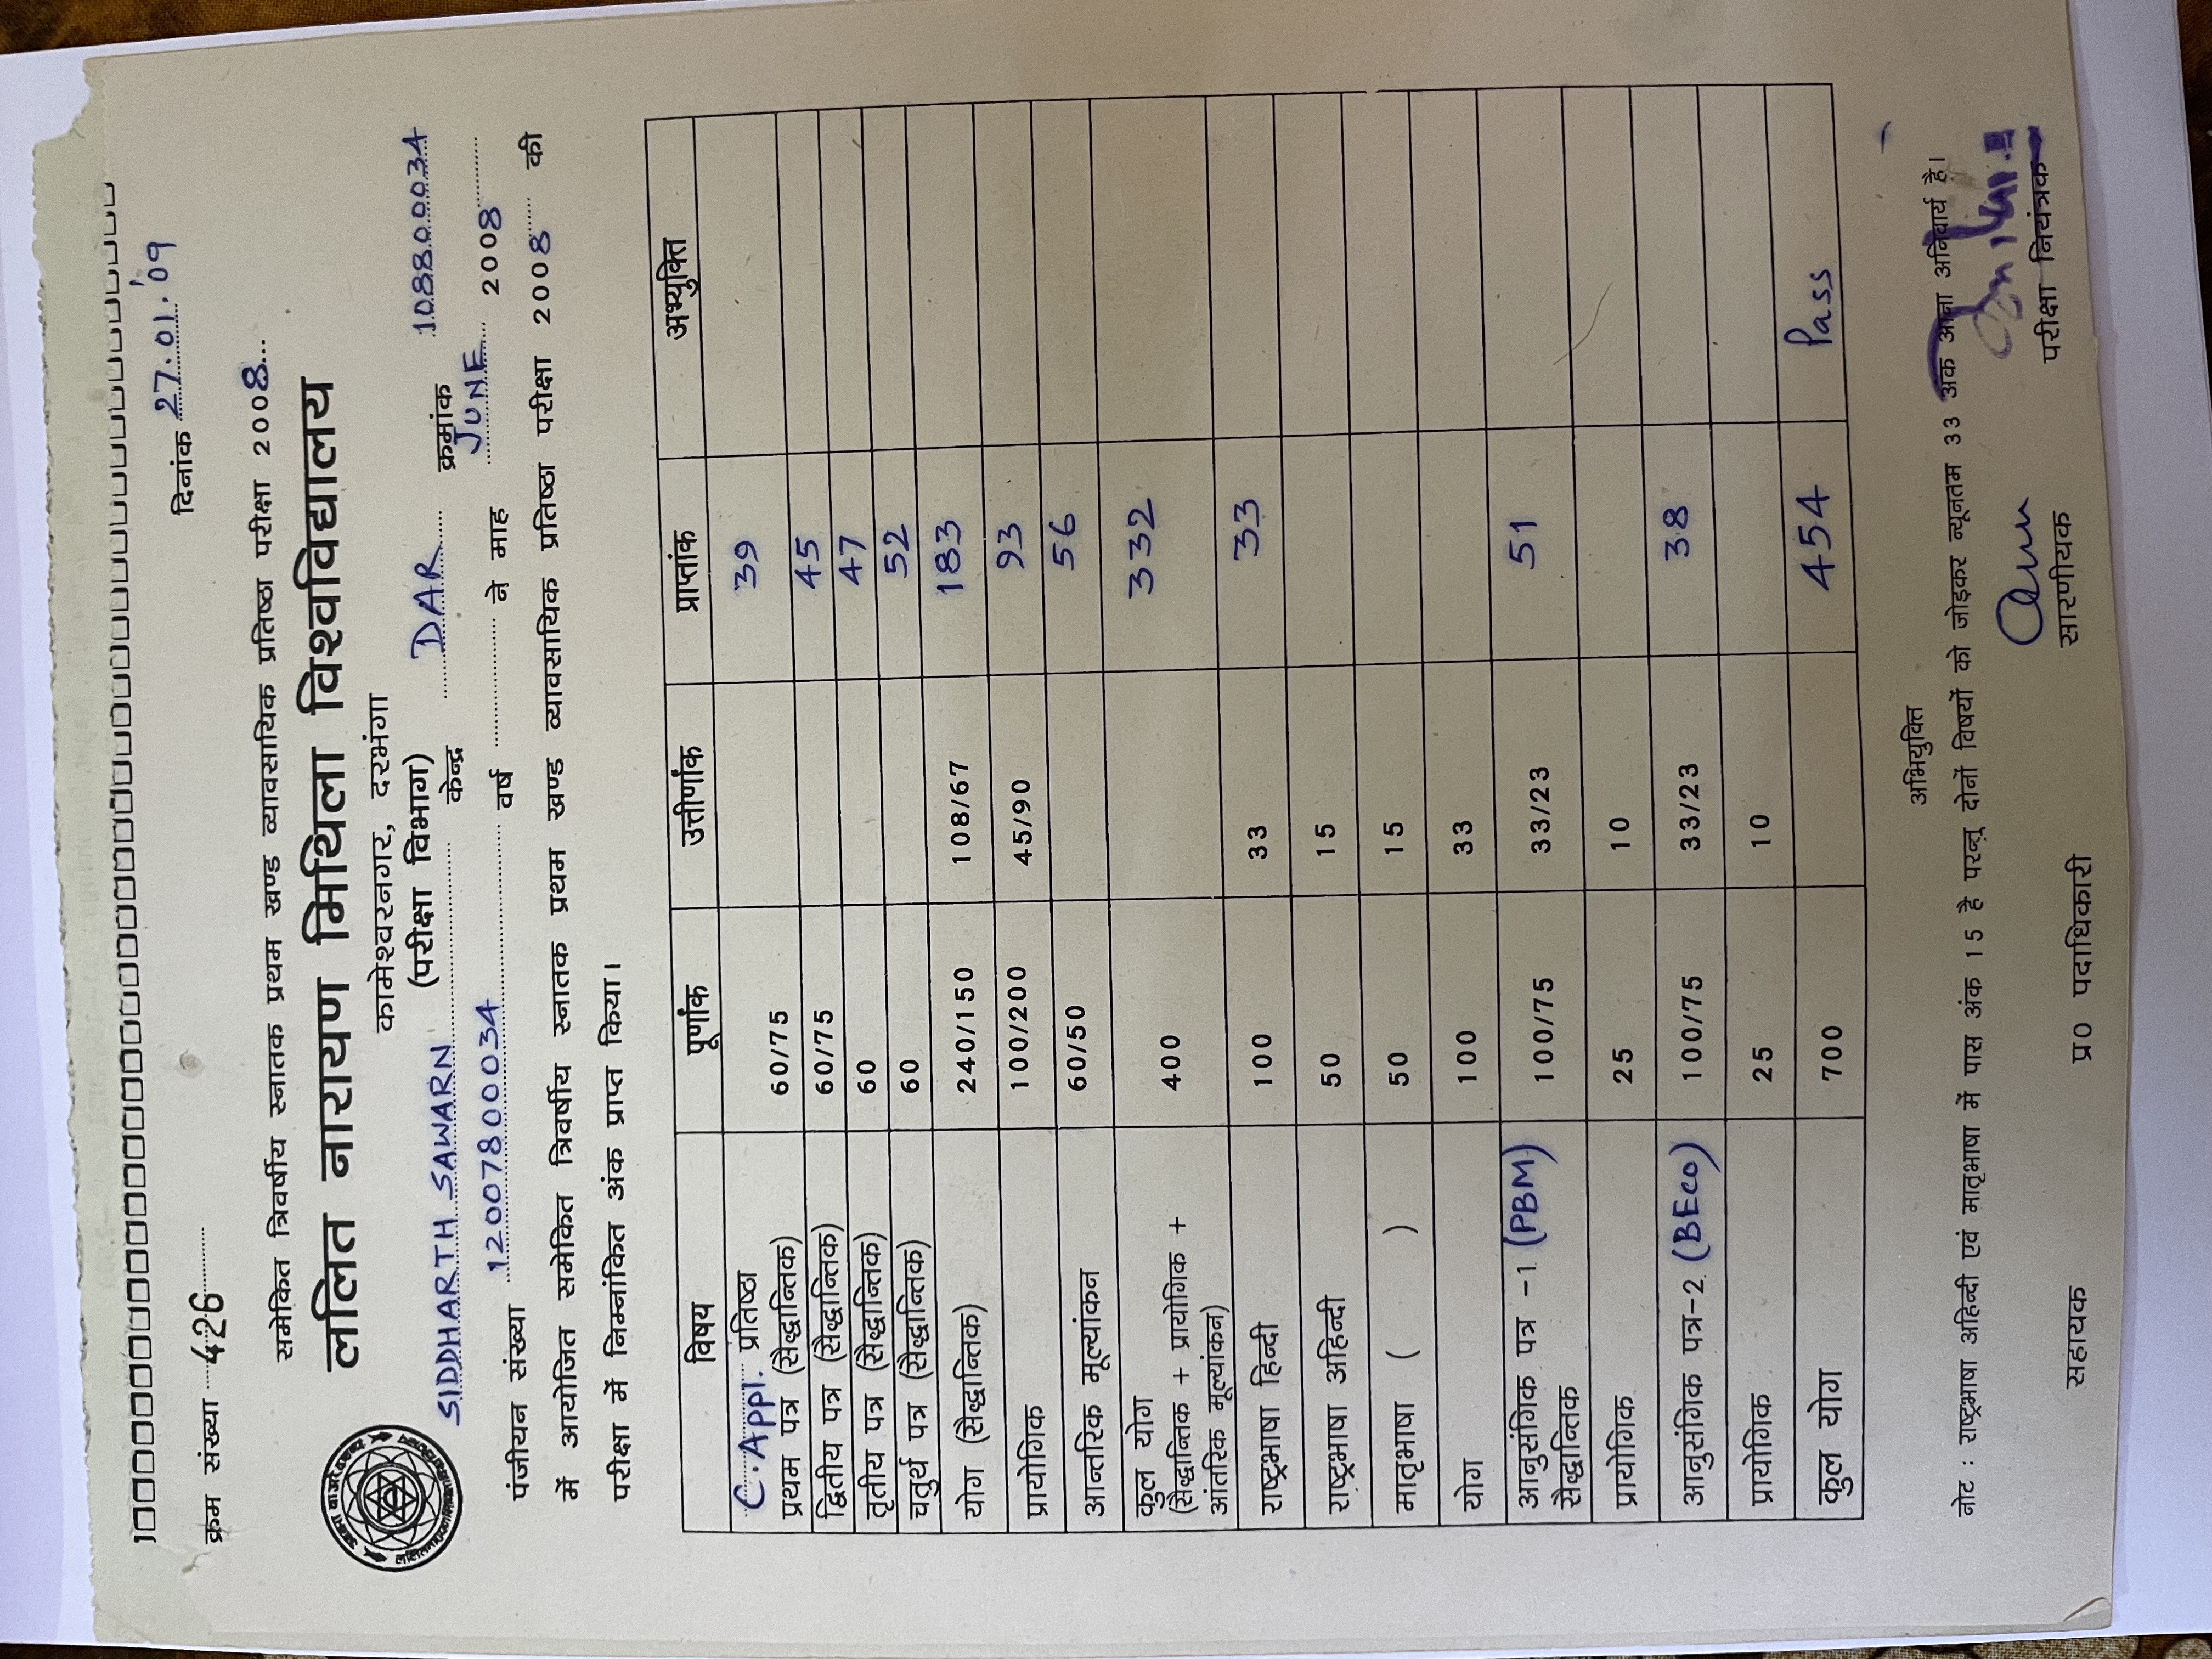 दिनांक 27.01.'09
क्रम संख्या 426
समेकित त्रिवर्षीय स्नातक प्रथम खण्ड व्यावसायिक प्रतिष्ठा परीक्षा 2008
ललित नारायण मिथिला विश्वविद्यालय
कामेश्वरनगर, दरभंगा
(परीक्षा विभाग)
SIDDHARTH SAWARN केन्द्र DAR क्रमांक 108800034
पंजीयन संख्या 1200780034 वर्ष ने माह JUNE 2008
में आयोजित समेकित त्रिवर्षीय स्नातक प्रथम खण्ड व्यावसायिक प्रतिष्ठा परीक्षा 2008 की
परीक्षा में निम्नांकित अंक प्राप्त किया।
विषय पूर्णांक उत्तीर्णांक प्राप्तांक अभ्युक्ति
C. Appl. प्रतिष्ठा
प्रथम पत्र (सैद्धान्तिक) 60/75 39
द्वितीय पत्र (सैद्धान्तिक) 60/75 45
तृतीय पत्र (सैद्धान्तिक) 60 47
चतुर्थ पत्र (सैद्धान्तिक) 60 52
योग (सैद्धान्तिक) 240/150 108/67 183
प्रायोगिक 100/200 45/90 93
आन्तरिक मूल्यांकन 60/50 56
कुल योग
(सैद्धान्तिक + प्रायोगिक + 400 332
आंतरिक मूल्यांकन)
राष्ट्रभाषा हिन्दी 100 33 33
राष्ट्रभाषा अहिन्दी 50 15
मातृभाषा ( ) 50 15
योग 100 33
आनुसंगिक पत्र -1 (PBM) 100/75 33/23 51
सैद्धान्तिक
प्रायोगिक 25 10
आनुसंगिक पत्र-2 (BEco) 100/75 33/23 38
प्रायोगिक 25 10
कुल योग 700 454 Pass
अभियुक्ति
नोट : राष्ट्रभाषा अहिन्दी एवं मातृभाषा में पास अंक 15 है परन्तु दोनों विषयों को जोड़कर न्यूनतम 33 अंक आना अनिवार्य है।
सहायक प्र0 पदाधिकारी सारणीयक परीक्षा नियंत्रक